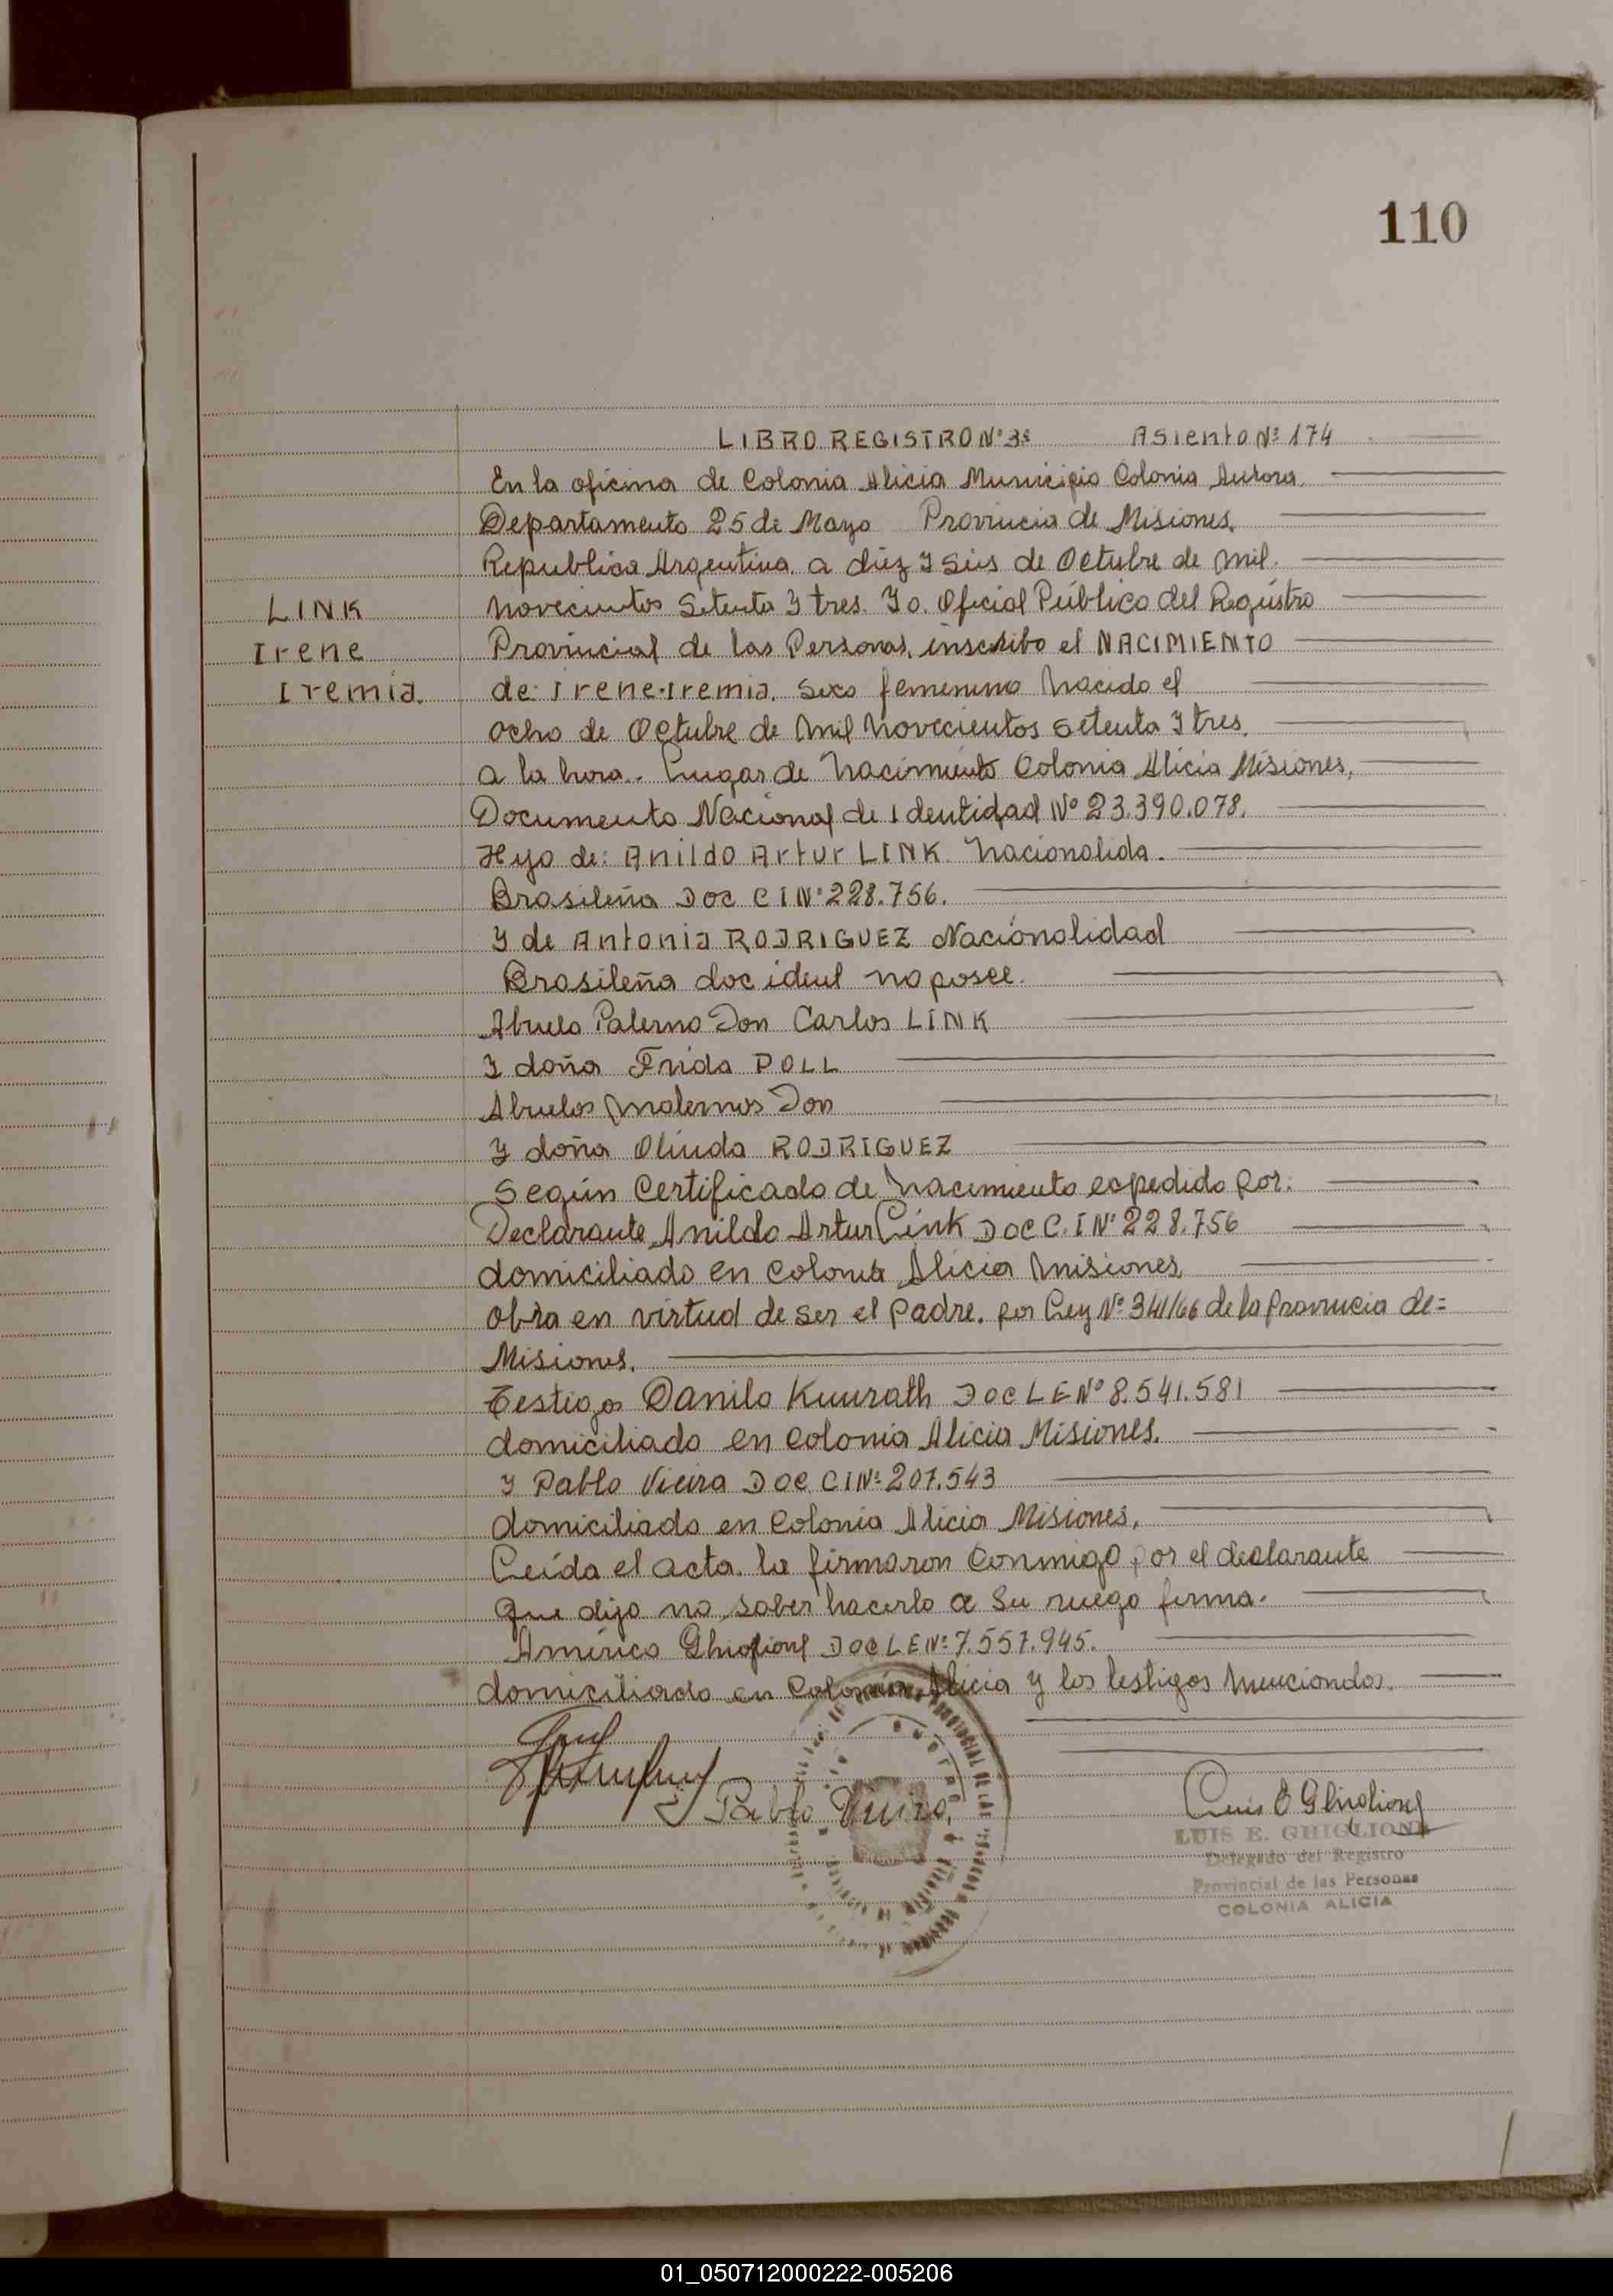 110
LIBRO REGISTRO Nº 3º Asiento Nº 174
En la oficina de Colonia Alicia Municipio Colonia Aurora.
Departamento 25 de Mayo Provincia de Misiones.
Republica Argentina. a diez y seis de Octubre de mil.
LINK
novecientos Setenta y tres. Yo. Oficial Público del Registro
Irene
Provincial de las Personas, inscribo el NACIMIENTO
Iremia.
de: Irene Iremia. Sexo femenino nacido el
ocho de Octubre de mil novecientos setenta y tres.
a la hora.. Lugar de nacimiento Colonia Alicia Misiones,
Documento Nacional de Identidad Nº 23.390.078.
Hijo de: Anildo Artur LINK. nacionalida.
Brasileña Doc C I Nº 228.756.
y de Antonia RODRIGUEZ Nacionalidad
Brasileña doc ident no posee.
Abuelo Paterno Don Carlos LINK
Y doña Frida POLL
Abuelos maternos Don
y doña Olinda RODRIGUEZ
Según Certificado de nacimiento expedido por:
Declarante Anildo Artur Link DOC C.I Nº 228.756
domiciliado en colonia Alicia Misiones,
obra en virtud de ser el padre. por Ley Nº 341/66 de la Provincia de=
Misiones.
Testigos Danilo Kunrath DOC L E Nº 8.541.581
domiciliado en colonia Alicia Misiones.
y Pablo Vieira DOC C I Nº 207.543
domiciliado en Colonia Alicia Misiones.
Leída el acta. la firmaron conmigo por el declarante
que dijo no saber hacerlo a su ruego firma.
Américo Ghiglione DOC L E Nº 7.557.945.
domiciliado en Colonia Alicia y los testigos mencionados.
Pablo Vieira,
Luis E Ghiglione
LUIS E. GHIGLIONE
Delegado del Registro
Provincial de las Personas
COLONIA ALICIA
01_050712000222-005206